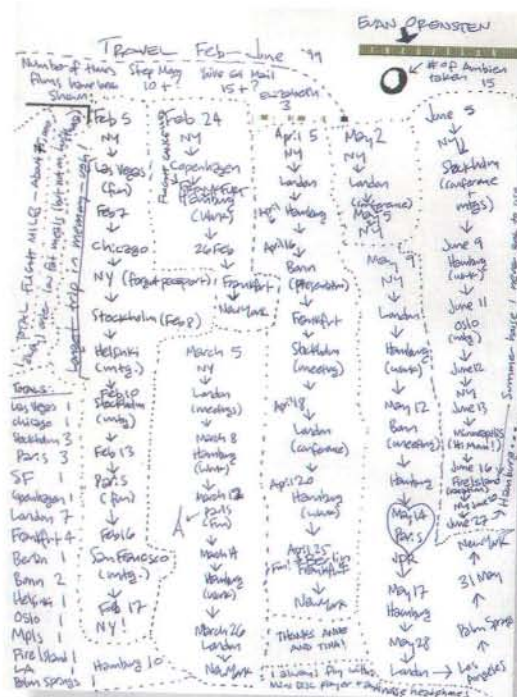 EVAN ORENSTEN
TRAVEL Feb - June '99
# of Ambien
taken 15
Number of times
films have been
shown:
Step Mom
10 + ?
You've Got Mail
15 + ?
Elizabeth
3
TOTAL FLIGHT MILES - About
Longest trip in memory - ugh!
Feb 5
NY
Las Vegas
(fun)
Feb 7
Chicago
NY (forgot passport)
Stockholm (Feb 8)
Helsinki
(mtg.)
Feb 10
Stockholm
(mtg)
Feb 13
Paris
(fun)
Feb 16
San Francisco
(mtg.)
Feb 17
NY!
Feb 24
NY
Copenhagen
Frankfurt
Hamburg
(work)
26 Feb
Frankfurt
New York
March 5
NY
London
(meetings)
March 8
Hamburg
(work)
March 12
Paris
(fun)
March 14
Hamburg
(work)
March 26
London
New York
April 5
NY
London
Hamburg
April 16
Bonn
Frankfurt
Stockholm
(meeting)
April 18
London
(conference)
April 20
Hamburg
(work)
April 25
Berlin
Frankfurt
New York
THANKS ANNE
AND TINA!
I always fly with
Mini Disc player +
headphones
May 2
NY
London
(conference)
May 5
NY
May 9
NY
London
Hamburg
(work)
May 12
Bonn
(meeting)
Hamburg
May 14
Paris
May 17
Hamburg
May 28
London
Los
Angeles
Palm Springs
31 May
New York
June 5
NY
Stockholm
(conference
+
mtgs)
June 9
Hamburg
(work)
June 11
Oslo
(mtg)
June 12
NY
June 13
Minneapolis
(Hi Mom!)
June 16
Fire Island
(vacation)
June 27
Hamburg
Summer house I never get to use
Totals:
Las Vegas 1
Chicago 1
Stockholm 3
Paris 3
SF 1
Copenhagen 1
London 7
Frankfurt 4
Berlin 1
Bonn 2
Helsinki 1
Oslo 1
Mpls 1
Fire Island 1
LA 1
Palm Springs 1
Hamburg 10